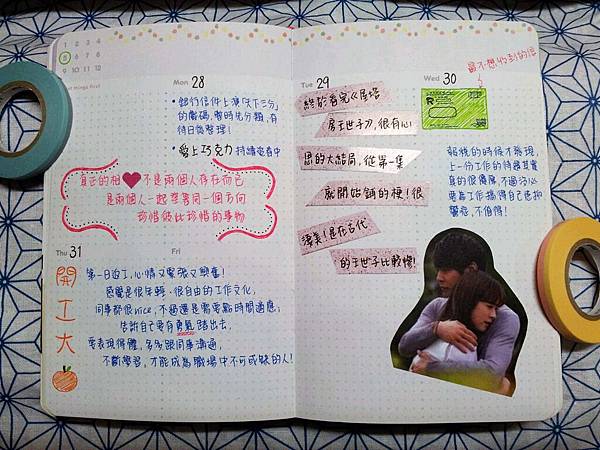 1 2 3 4
5 6 7 8
9 10 11 12
things first
Mon 28
• 銀行信件上演「天下三分」
的戲碼,暫時先分類,有
待日後整理!
• 愛上巧克力 持續進行中
真正的相♥不是兩個人存在而已
是兩個人一起望著同一個方向
珍惜彼此珍惜的事物
Thu 31
Fri
開工大
第一日返工,心情又緊張又興奮!
感覺是很年輕、很自由的工作文化,
同事都很nice,不過還是需要點時間適應;
告訴自己要有勇氣踏出去,
要表現得體,多多跟同事溝通,
不斷學習,才能成為職場中不可或缺的人!
Tue 29
終於看完《屋塔
房王世子》,很有心
思的大結局,從第一集
就開始鋪的梗!很
淒美!是在古代
的王世子比較慘!
Wed 30
最不想收到的信
R
報稅的時候才發現,
上一份工作的待遇其實
真的很優厚,不過沒心